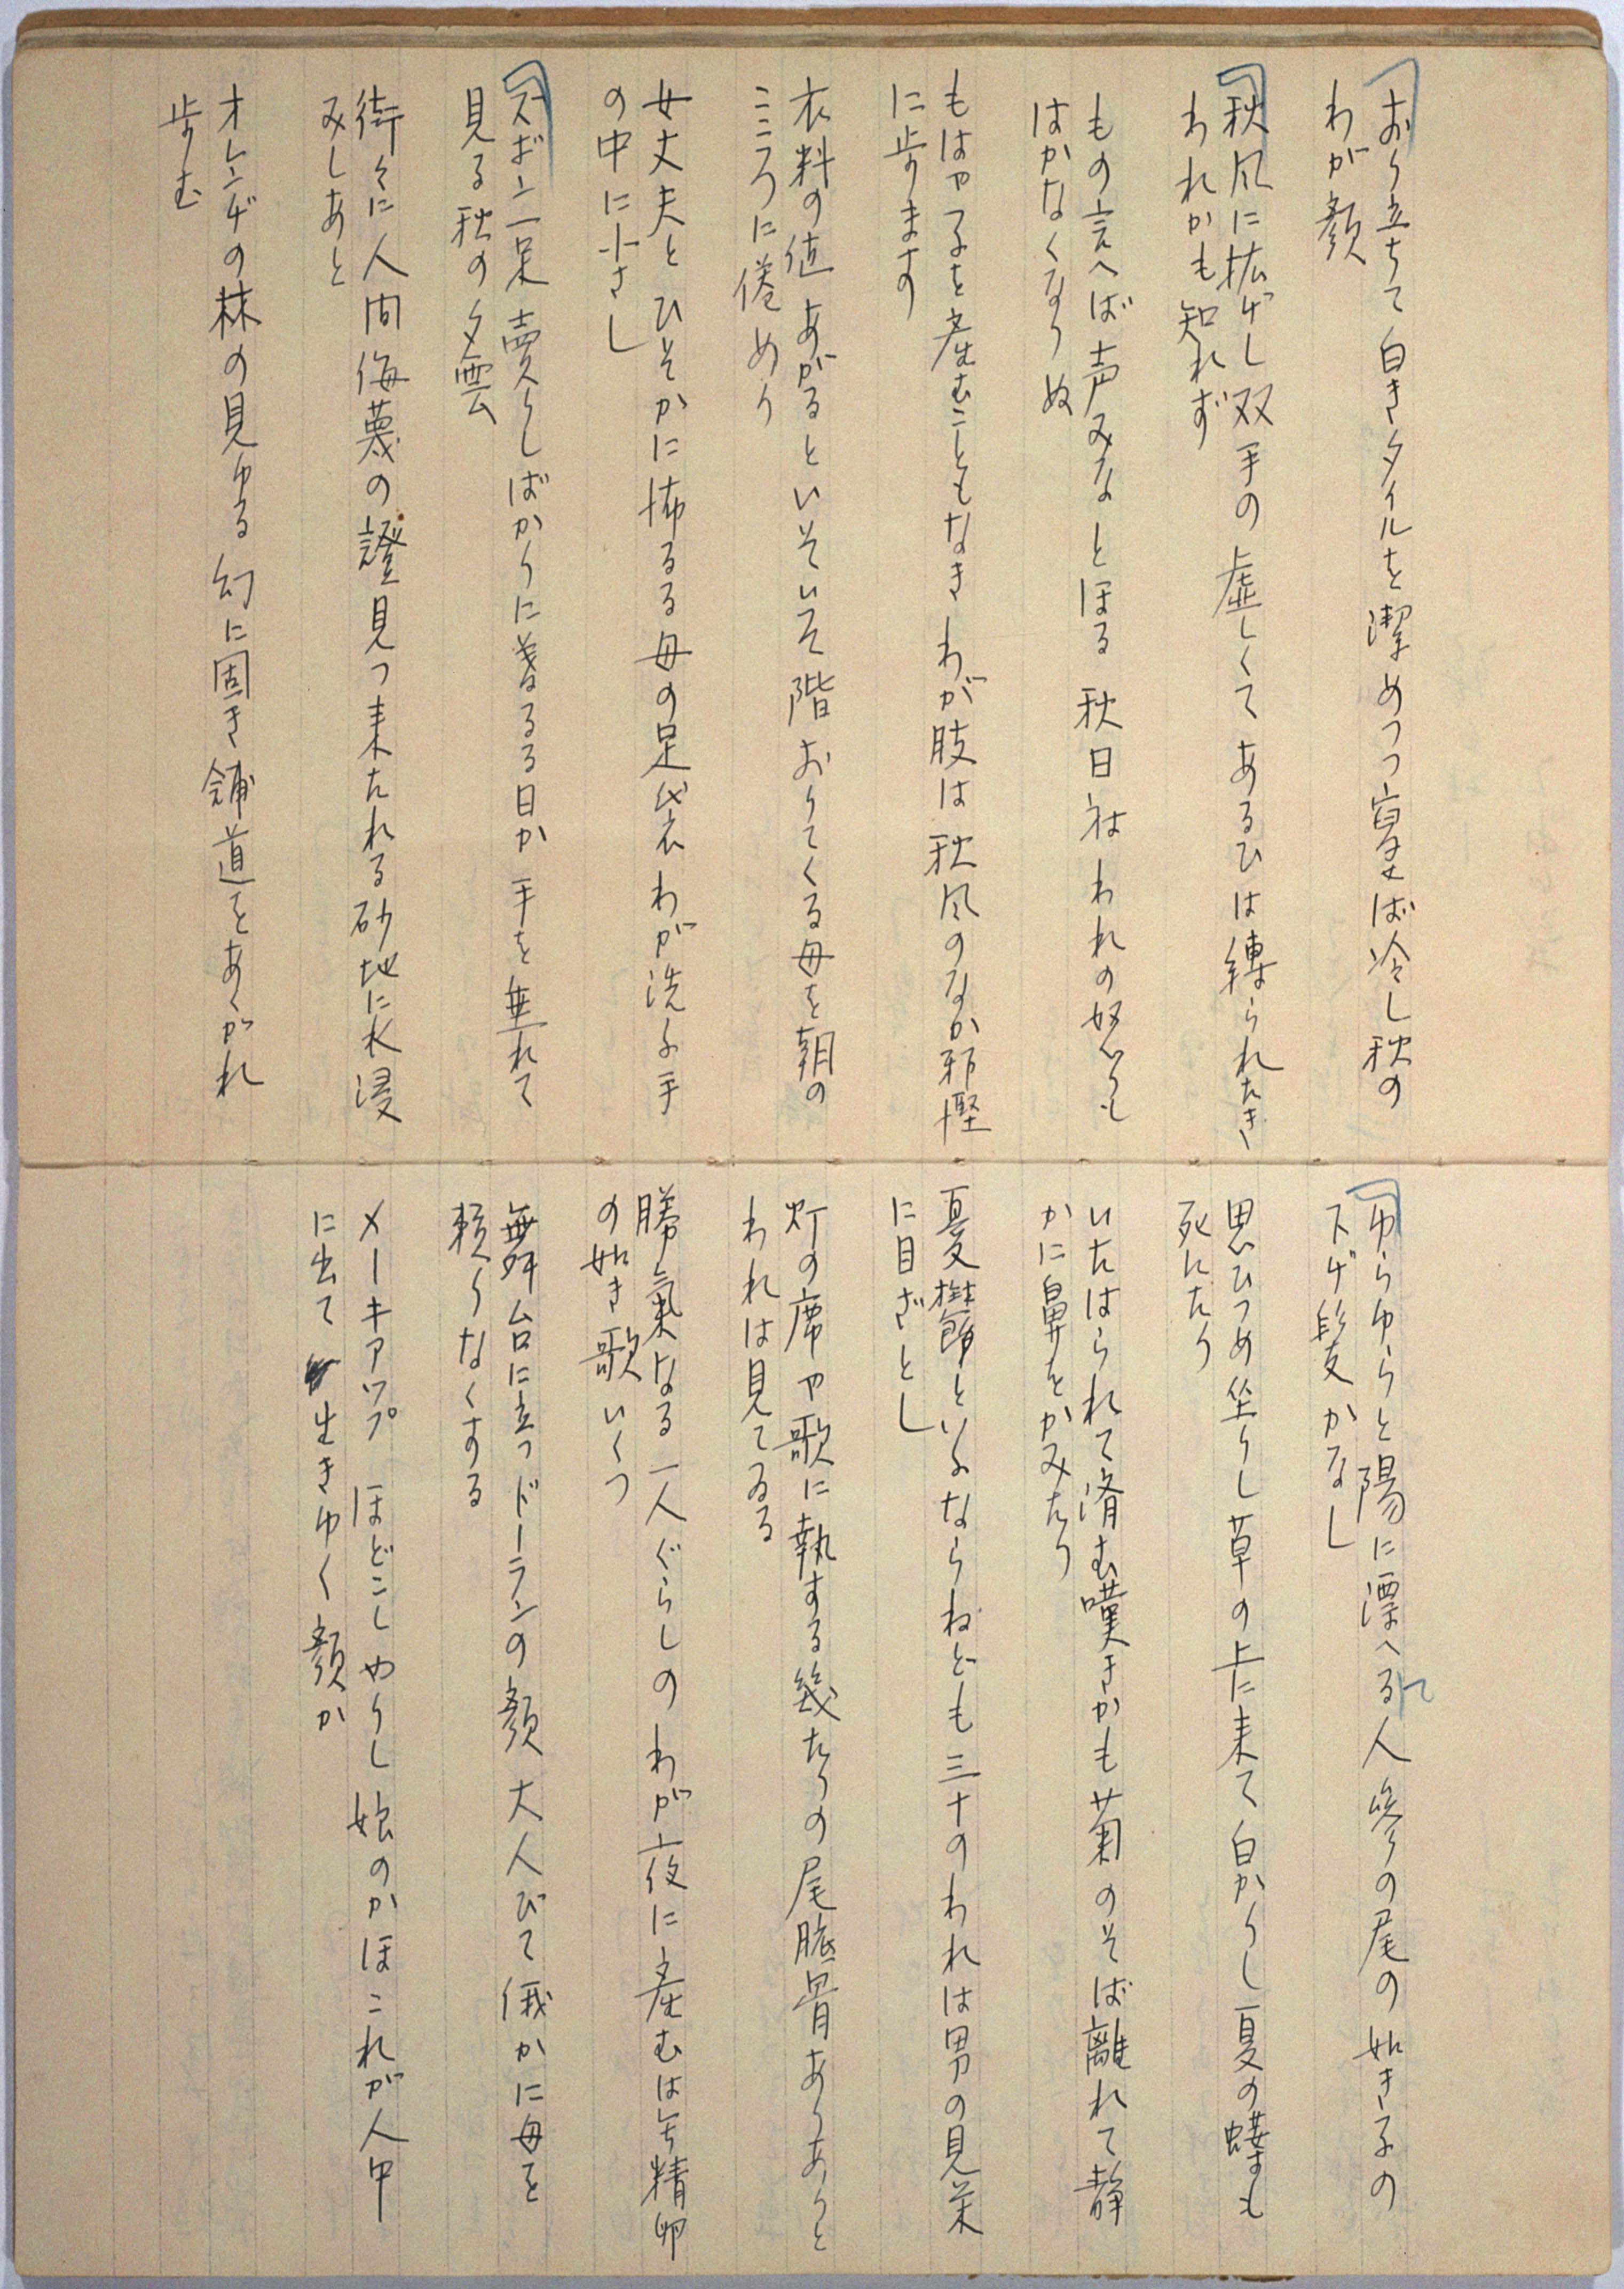 おり立ちて白きタイルを潔めつつ寝ば冷し秋の
わが顔
秋風に拡げし双手の虚しくてあるひは縛られたき
われかも知れず
もの言へば声みなとほる秋日ねわれの怒りも
はかなくなりぬ
もはやつるを産むこともなきわが肢は秋風のなか邪慳
に歩ます
衣料の値あがるといそいそ階おりてくる母を朝の
こころに倦めり
女丈夫とひそかに怖るる母の足袋わが洗ふ手
の中に小さし
ズボン一足売りしばかりに暮るる日か手を垂れて
見る秋の夕雲
街々に人間侮蔑の證見つ来たれる砂地に水浸
みしあと
オレンヂの林の見ゆる幻に固き舗道をあくがれ
歩む
ゆらゆらと陽に漂へる人参の尾の如き子の
下げ髪かなし
て
思ひつめ坐りし草の上に来て白かりし夏の蝶も
死にたり
いたはられて済む嘆きかも菊のそば離れて静
かに鼻をかみたり
憂鬱といふならねども三十のわれは男の見栄
に目ざとし
灯の席や歌に執する幾たりの尾骶骨ありありと
われは見てゐる
勝氣なる一人ぐらしのわが夜に産むは無精卵
の如き歌いくつ
舞台に立つドーランの顔大人びて俄かに母を
頼りなくする
メーキアップほどこしやりし娘のかほこれが人中
に出て生きゆく顔か